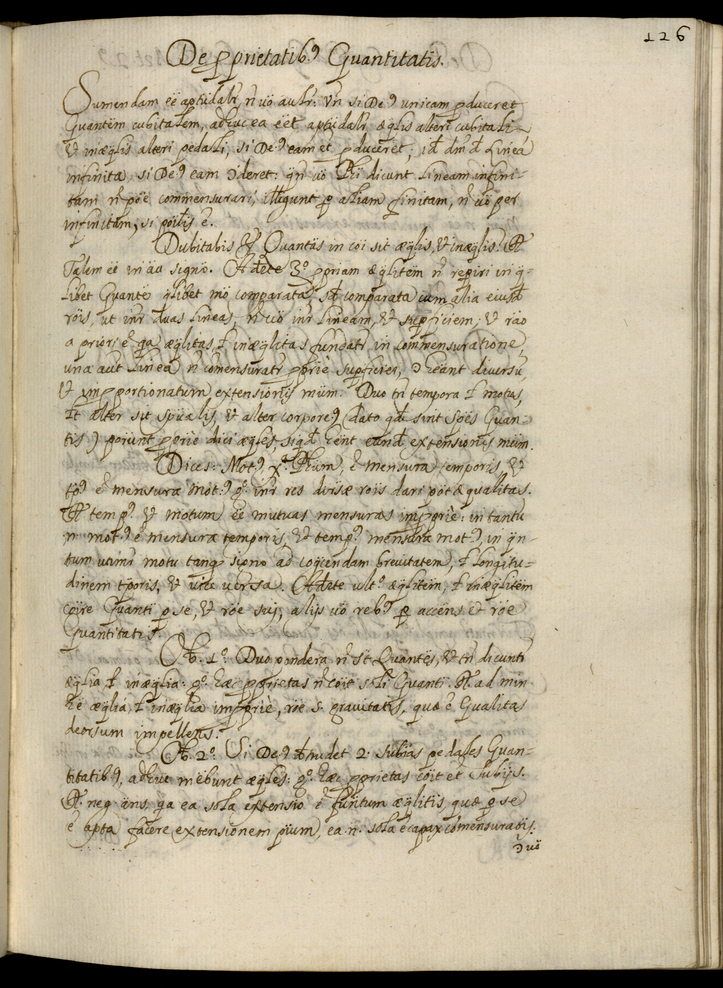 126
De pprietatib9 Quantitatis.
Sumendam eē aptudalr, n̄ uō
Quantēm cubitalem, adhuc ea eēt aptudalr æglis alteri cubitali
& inæglis alteri pedali, si De9 eam et pduceret; id dm̄ d Linea
infinita, si De9 eam ɔderet: qn uō Phi dicunt Lineam infini-
tam n̄ pōe commensurari, itligunt p aliam finitam, n̄ uō per
infinitam, si pōilis ē.
Dubitabis Quantās in cōi sit æglis, & inæglis: R
Talem eē in āu signo. Adete 3º ppriam æglitēm n̄ repiri in q-
libet Quantē qlibet mō comparata, sd comparata cum alia eiusd
rōis, ut inr duas lineas, n̄ uō inr Lineam, & supficiem; & rāo
a priori ē qa æglitas, l inæglitas fundatr in commensuratione,
una aut Linea n̄ comensuratr pprie supficiei, ɔ heant diuersū,
& impportionatum extensionis mūm. Duo tn̄ tempora l motus,
lt alter sit spūalis, & alter corpore9 dato qd sint spēs Quan-
tis) porunt pprie dici æqles, siqd hēnt eund extensionis mūm.
Dices: Mot9, Phum, ē mensura temporis, &
tp9 ē mensura mot9: g° inr res diuisæ rōis dari pōt æqualitas.
R temp9 & motum eē mutuas mensuras impprie: in tantū
n̄ mot9 ē mensura temporis, & temp9 mensura mot9, in qn-
tum utimr motu tanq signo ad cogendam breuitatem, l longitu-
dinem tp̄oris, & uice uersa. Adete ult° æglitēm, l inæglitēm
cōire Quanti p se, & rōe sui, alijs uō reb9 p accēns et rōe
Quantitatis.
Ob. 1º. Duo pondera n̄ st Quantēs, & tn̄ dicuntr
æglia l inæglia: g° hæc pprietas n̄ cōit sli Quanti. R ad min
eē æglia, l inæglia impprie, rōe s. grauitatis, quæ ē Qualitas
deorsum impellens.
Ob. 2º. Si De9 2. subias pedales Quan-
titatib9, adhuc mēbunt ægles: g° hæc pprietas cōit et Subijs.
R. neg āns, qa ea sola extensio ē fund̄tum æglitis, quæ p se
ē apta facere extensionem pium, ea n̄ sola ē capax comensuratis.
ɔ uō